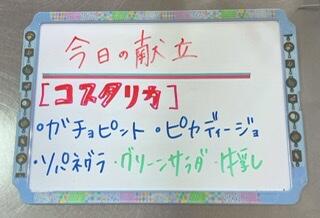 今日の献立
[コスタリカ]
・ガチョピント ・ピカディージョ
・ソパネグラ ・グリーンサラダ ・牛乳